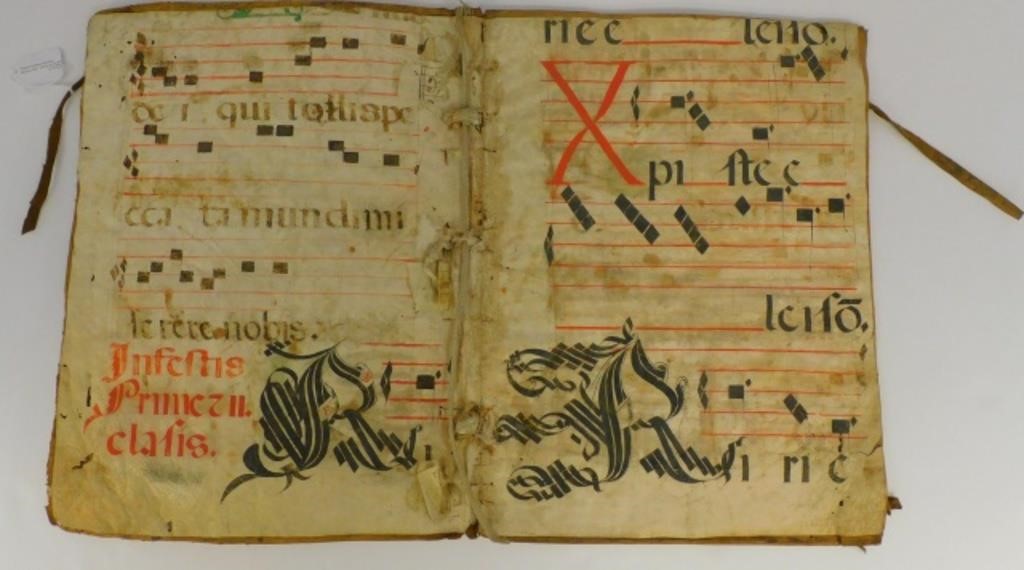 de i qui tollis pe
cca ta mundi mi
se rere nobis.
In festis
Prime z ii.
clasis.
Ki
rie e leiso.
Xpi ste e
leisō.
Ki ri e